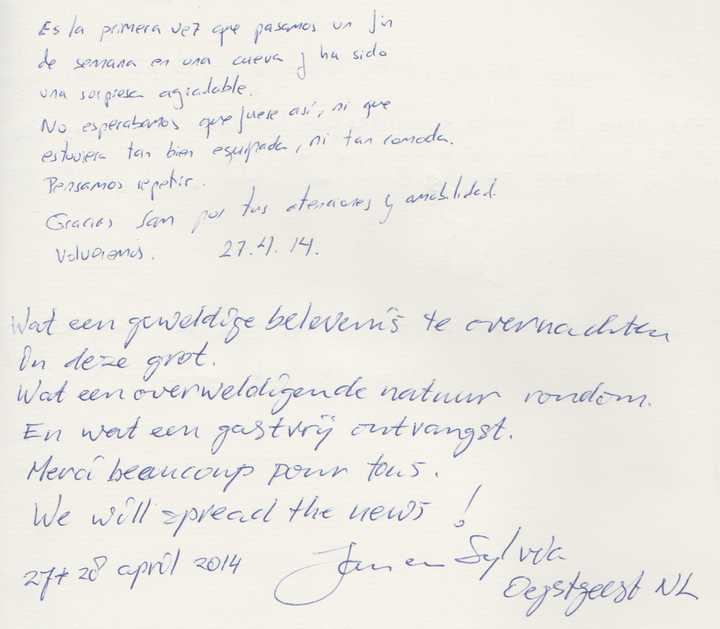 Es la primera vez que pasamos un fin
de semana en una cueva y ha sido
una sorpresa agradable.
No esperabamos que fuese así, ni que
estuviera tan bien equipada, ni tan comoda.
Pensamos repetir.
Gracias Sam por tus atenciones y amabilidad.
Volveremos. 27.4.14.
Wat een geweldige belevenis te overnachten
In deze grot.
Wat een overweldigende natuur rondom.
En wat een gastvrij ontvangst.
Merci beaucoup pour tous.
We will spread the news!
27+28 april 2014 Jan en Sylvia
Oegstgeest NL